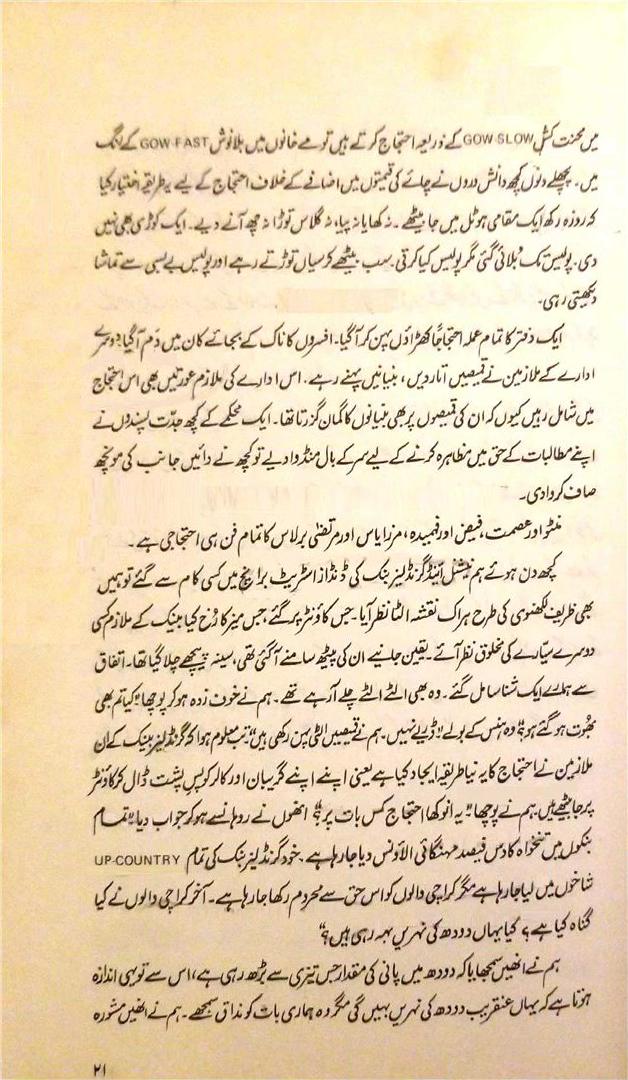 میں محنت کش GOW-SLOW کے ذریعہ احتجاج کرتے ہیں تو مے خانوں میں بلانوش GOW-FAST کے رنگ
میں۔ پچھلے دنوں کچھ دانش وروں نے چائے کی قیمتوں میں اضافے کے خلاف احتجاج کے لیے یہ طریقہ اختیار کیا
کہ روزہ رکھ ایک مقامی ہوٹل میں جا بیٹھے۔ نہ کھایا نہ پیا، نہ گلاس توڑا نہ چھ آنے دیے۔ ایک کوڑی بھی نہیں
دی۔ پولیس تک بُلائی گئی مگر پولیس کیا کرتی۔ سب بیٹھے کرسیاں توڑتے رہے اور پولیس بے بسی سے تماشا
دیکھتی رہی۔
ایک دفتر کا تمام عملہ احتجاجاً کھڑاؤں پہن کر آ گیا۔ افسروں کا ناک کے بجائے کان میں دَم آ گیا۔ دوسرے
ادارے کے ملازمین نے قمیصیں اتار دیں، بنیانیں پہنے رہے۔ اس ادارے کی ملازم عورتیں بھی اس احتجاج
میں شامل رہیں کیوں کہ ان کی قمیصوں پر بھی بنیانوں کا گمان گزرتا تھا۔ ایک محکمے کے کچھ جدّت پسندوں نے
اپنے مطالبات کے حق میں مظاہرہ کرنے کے لیے سر کے بال منڈوا دیے تو کچھ نے دائیں جانب کی مونچھ
صاف کروا دی۔
منٹو اور عصمت، فیض اور فہمیدہ، مرزا یاس اور مرتضیٰ برلاس کا تمام فن ہی احتجاجی ہے۔
کچھ دن ہوئے ہم نیشنل اینڈ گرنڈلیز بنک کی ڈنڈاز اسٹریٹ برانچ میں کسی کام سے گئے تو ہمیں
بھی ظریف لکھنوی کی طرح ہر اک نقشہ الٹا نظر آیا۔ جس کاؤنٹر پر گئے، جس میز کا رُخ کیا بینک کے ملازم کسی
دوسرے سیّارے کی مخلوق نظر آئے۔ یقین جانیے ان کی پیٹھ سامنے آ گئی تھی، سینہ پیچھے چلا گیا تھا۔ اتفاق
سے ہمارے ایک شناسا مل گئے۔ وہ بھی الٹے الٹے چلے آ رہے تھے۔ ہم نے خوف زدہ ہو کر پوچھا "کیا تم بھی
بھُوت ہو گئے ہو؟" وہ ہنس کے بولے "ڈریے نہیں۔ ہم نے قمیصیں الٹی پہن رکھی ہیں" تب معلوم ہوا کہ گرنڈلیز بینک کے ان
ملازمین نے احتجاج کا یہ نیا طریقہ ایجاد کیا ہے یعنی اپنے اپنے گریبان اور کالر کو پسِ پشت ڈال کر کاؤنٹر
پر جا بیٹھے ہیں۔ ہم نے پوچھا "یہ انوکھا احتجاج کس بات پر؟" انھوں نے روہانسے ہو کر جواب دیا "تمام
بنکوں میں تنخواہ کا دس فیصد مہنگائی الاؤنس دیا جا رہا ہے۔ خود گرنڈلیز بنک کی تمام UP-COUNTRY
شاخوں میں لیا جا رہا ہے مگر کراچی والوں کو اس حق سے محروم رکھا جا رہا ہے۔ آخر کراچی والوں نے کیا
گناہ کیا ہے؟ کیا یہاں دودھ کی نہریں بہہ رہی ہیں؟"
ہم نے انھیں سمجھایا کہ دودھ میں پانی کی مقدار جس تیزی سے بڑھ رہی ہے، اس سے تو یہی اندازہ
ہوتا ہے کہ یہاں عنقریب دودھ کی نہریں بہیں گی مگر وہ ہماری بات کو مذاق سمجھے۔ ہم نے انھیں مشورہ
۲۱